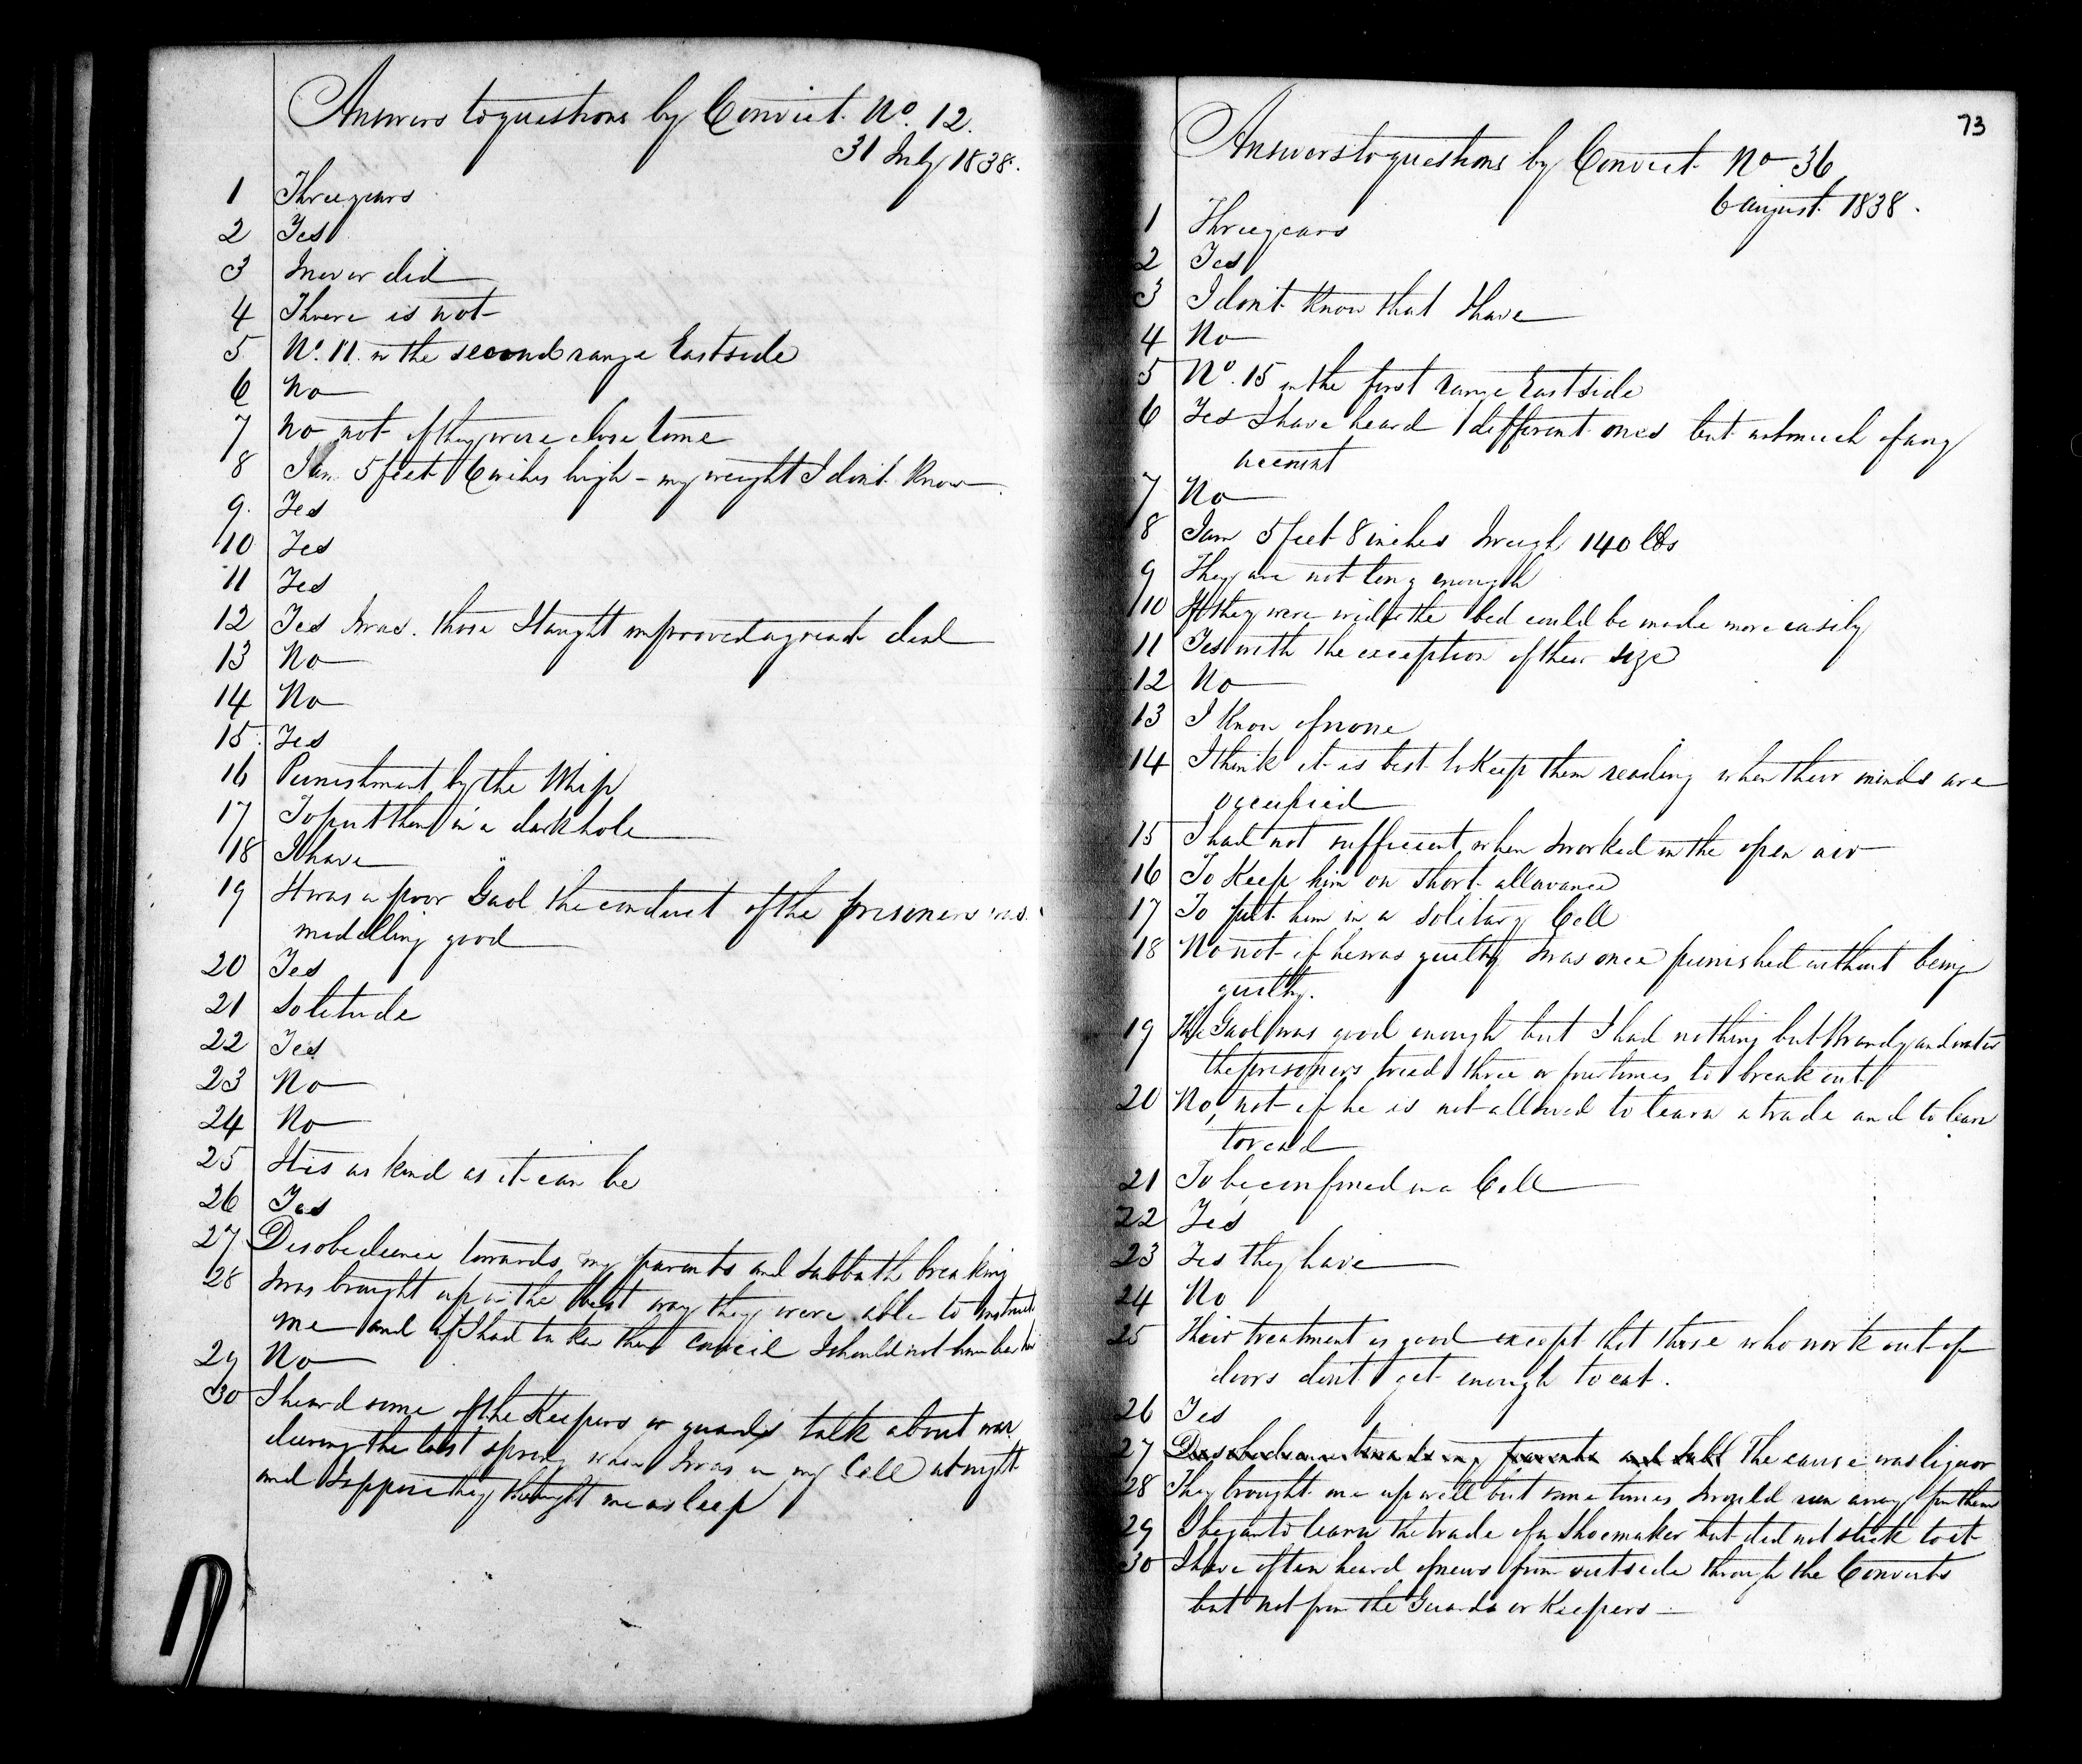 Answers to questions by Convict No. 12.
31 July 1838.
1 Three years
2 Yes
3 I never did
4 There is not
5 No. 11 in the second range East side
6 No
7 No not if they were close to me
8 I am 5 feet 6 inches high - my weight I dont know
9. Yes
10 Yes
11 Yes
12 Yes I was. those I taught improved a great deal
13 No
14 No
15. Yes
16 Punishment by the Whip
17 To put them in a dark hole
18 I have
19 It was a poor Gaol the conduct of the prisoners was
middling good
20 Yes
21 Solitude
22 Yes
23 No
24 No
25 It is as kind as it can be
26 Yes
27 Disobedience towards my parents and Sabbath breaking
28 I was brought up in the best way they were able to instruct
me and if I had taken their council I should not have been here
29 No
30 I heard some of the Keepers or guards talk about war
during the last spring when I was in my Cell at night
and I suppose they thought me asleep
73
Answers to questions by Convict No 36
6 August 1838.
1 Three years
2 Yes
3 I don't know that I have
4 No
5 No. 15 in the first range East side
6 Yes I have heard different ones but not much of any
account
7 No
8 I am 5 feet 8 inches I weigh 140 lbs
9 They are not long enough
10 If they were wider the bed could be made more easily
11 Yes with the exception of their size
12 No
13 I know of none
14 I think it is best to keep them reading when their minds are
occupied
15 I had not sufficient when I worked in the open air
16 To Keep him on short allowance
17 To put him in a solitary Cell
18 No not if he was guilty I was once punished without being
guilty.
19 The Gaol was good enough but I had nothing but Brandy and water
the prisoners tried three or four times to break out
20 No, not if he is not allowed to learn a trade and to learn
to read
21 To be confined in a Cell
22 Yes
23 Yes they have
24 No
25 Their treatment is good except that those who work out of
doors dont get enough to eat.
26 Yes
27 Disobedience towards my parents and Sabb The cause was liquor
28 They brought me up well but some times I would run away from them
29 I began to learn the trade of a Shoemaker but did not stick to it
30 I have often heard of news from outside through the Convicts
but not from the Guards or Keepers